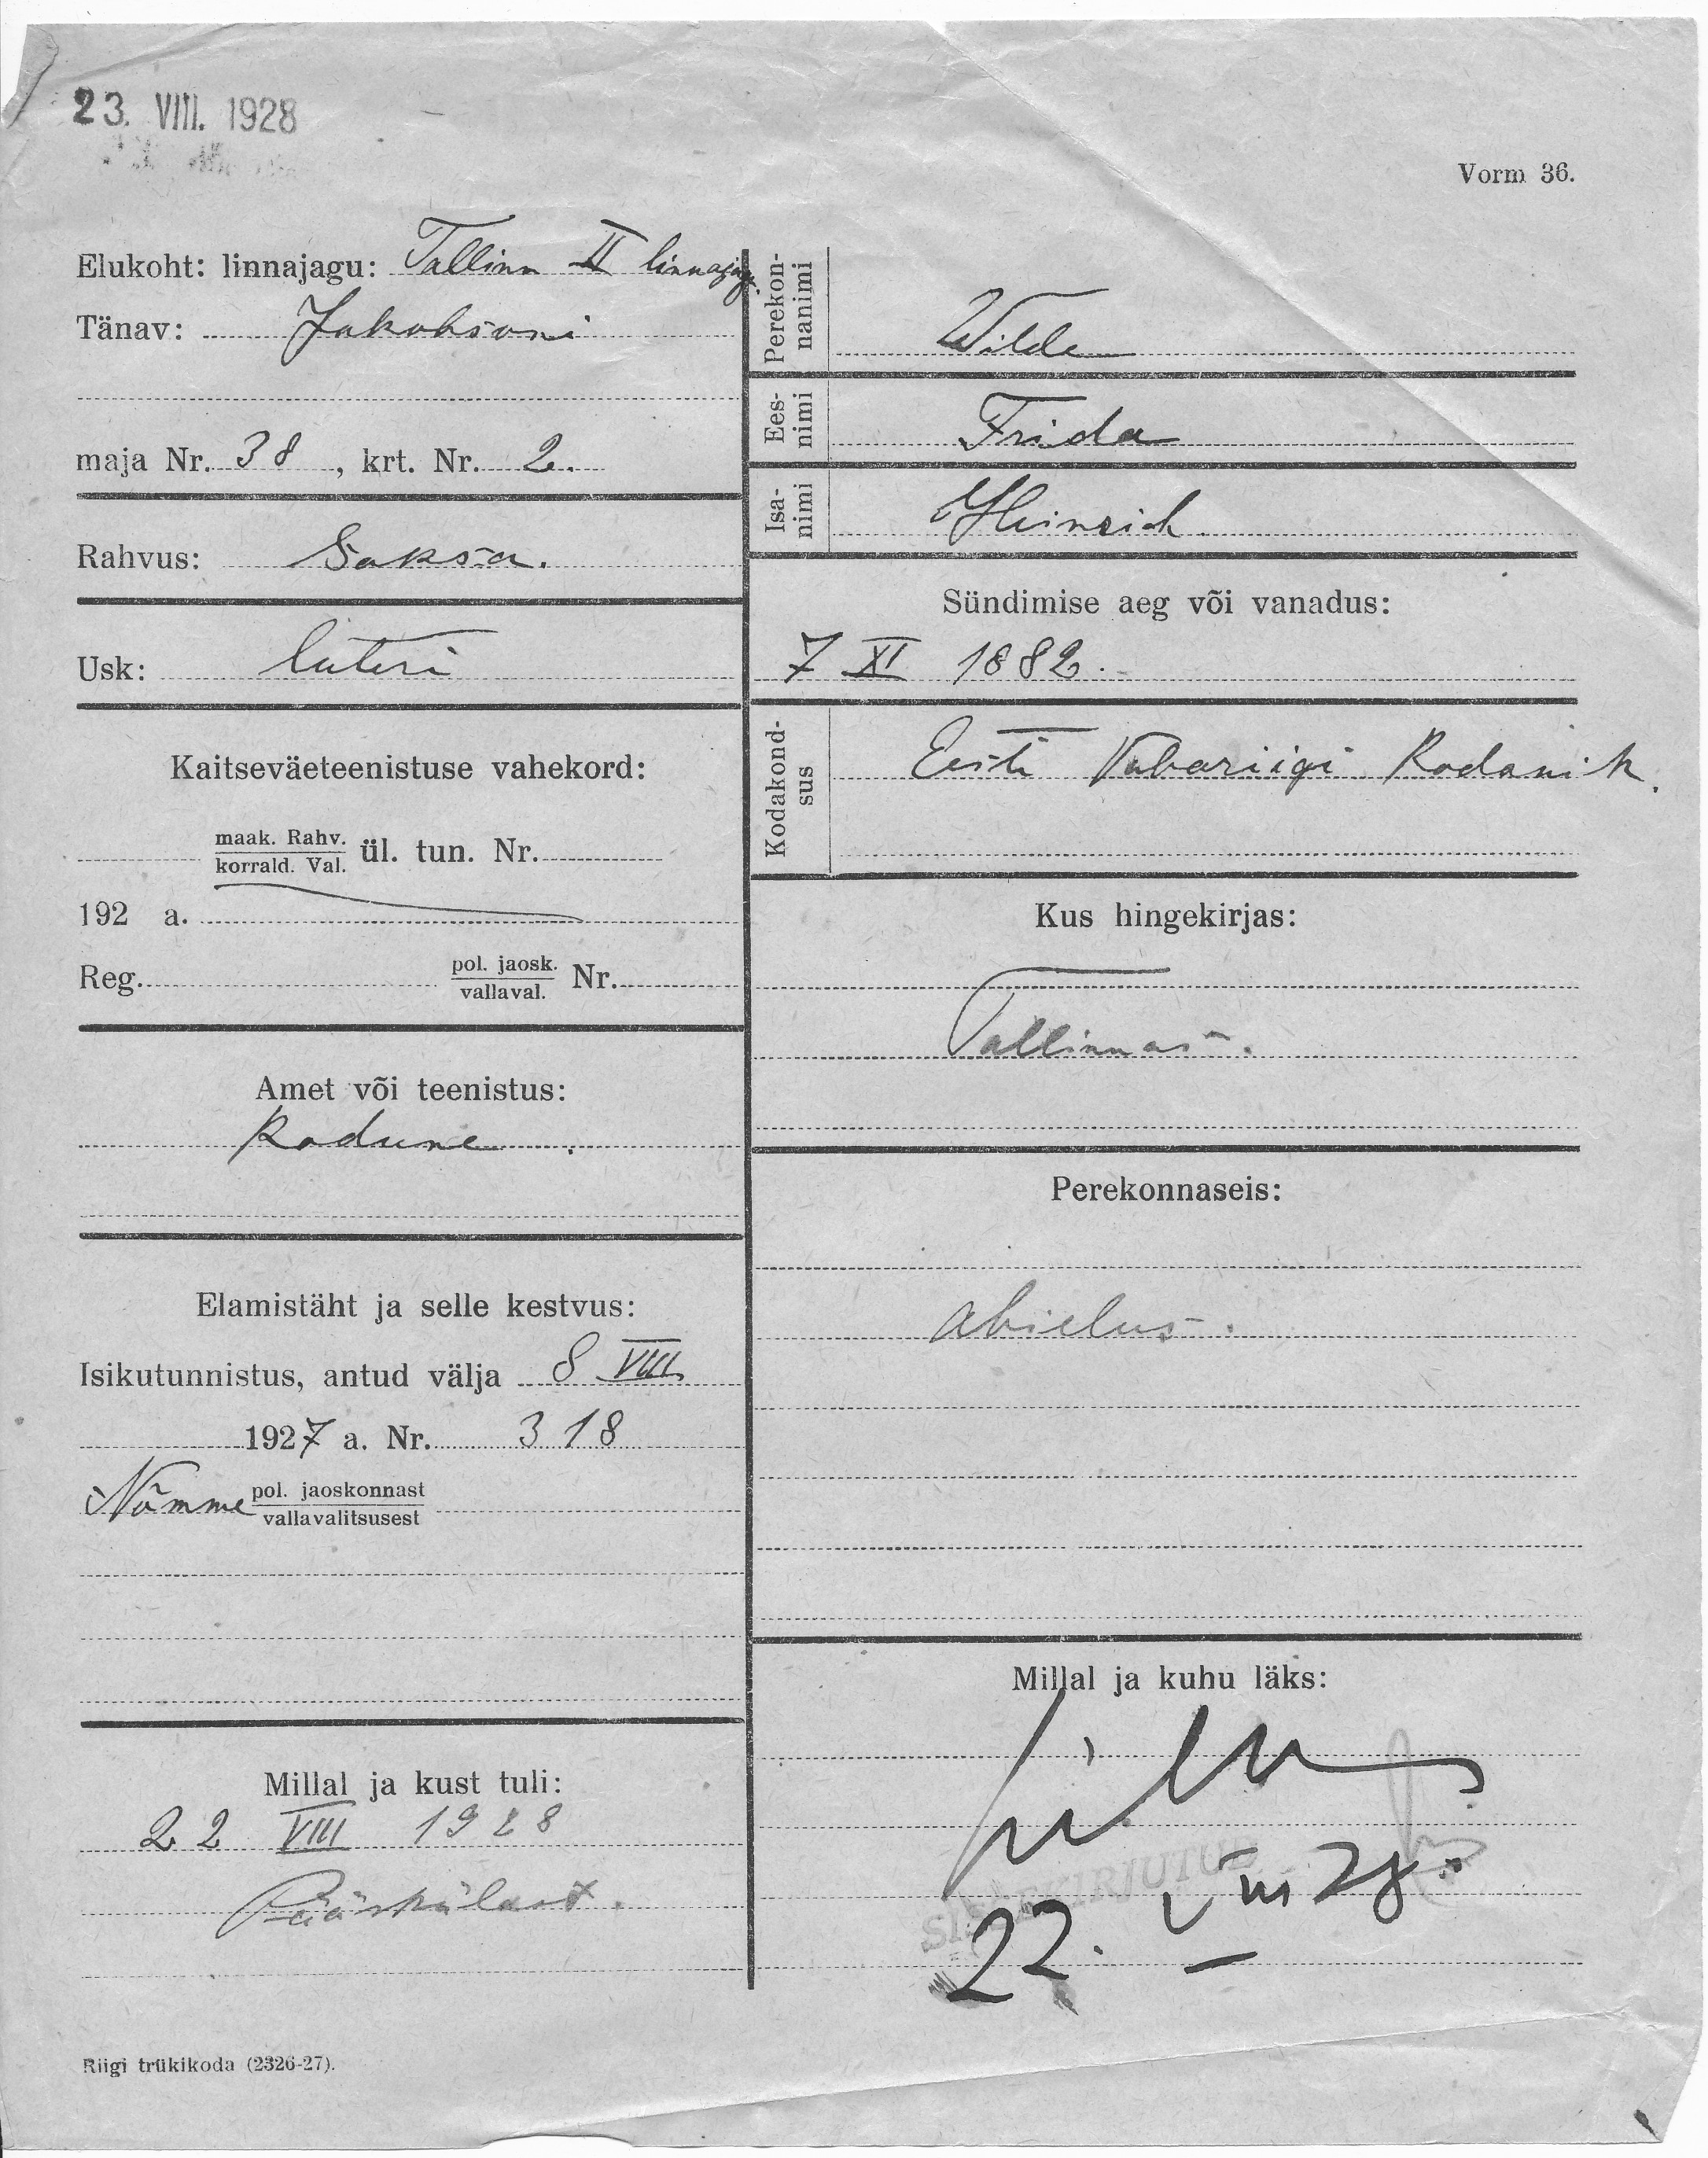 23. VIII. 1928
Vorm 36.
Elukoht: linnajagu: Tallinn II linnajagu.
Tänav: Jakobsoni
maja Nr. 38, krt. Nr. 2.
Rahvus: Saksa.
Usk: luteri
Kaitseväeteenistuse vahekord:
maak. Rahv.
korrald. Val. ül. tun. Nr.
192 a.
Reg. pol. jaosk. Nr.
vallaval.
Amet või teenistus:
Kodune.
Elamistäht ja selle kestvus:
Isikutunnistus, antud välja 8 VIII
1927 a. Nr. 318
Nõmme pol. jaoskonnast
vallavalitsusest
Millal ja kust tuli:
22 VIII 1928
Pääskülast.
Perekon-
nanimi
Wilde
Ees-
nimi
Frida
Isa-
nimi
Heinrich.
Sündimise aeg või vanadus:
7 XI 1882.
Kodakond-
sus
Eesti Vabariigi Kodanik.
Kus hingekirjas:
Tallinnas.
Perekonnaseis:
abielus.
Millal ja kuhu läks:
SISSEKIRJUTUD
22. VIII 28.
Riigi trükikoda (2326-27).